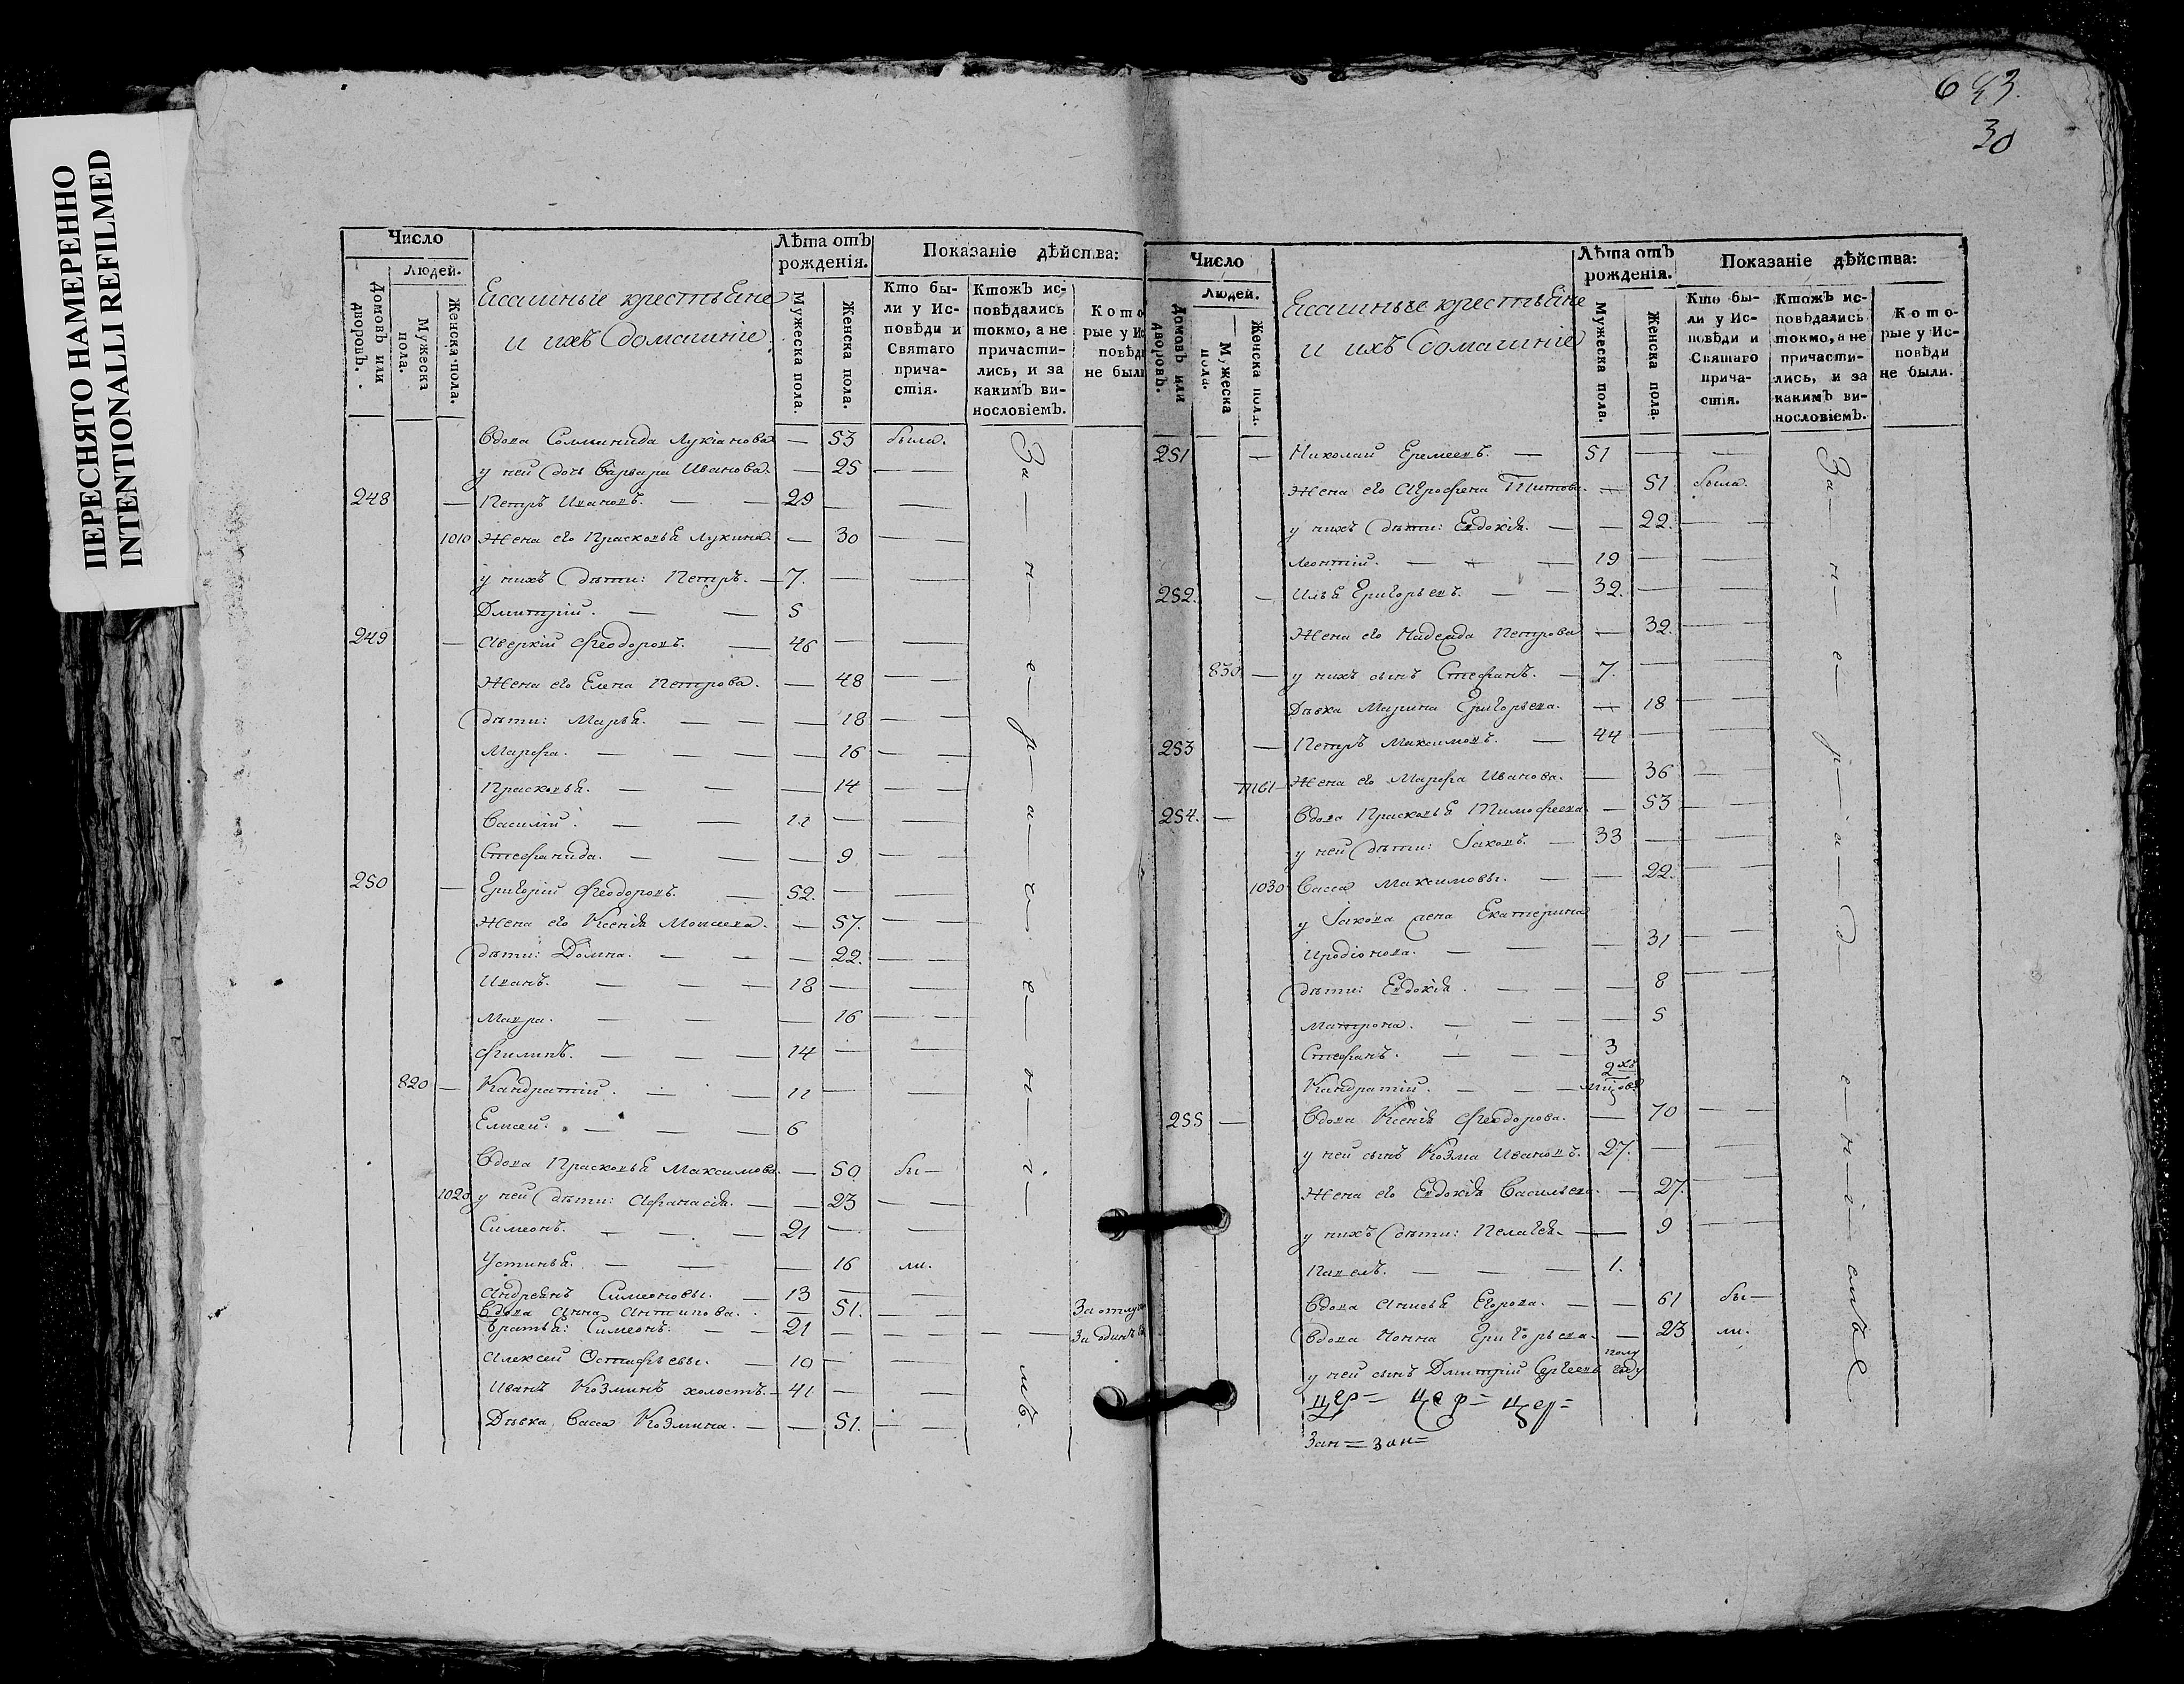 ПЕРЕСНЯТО НАМЕРЕННО
INTENTIONALLI REFILMED
Число
Людей.
Домовъ или дворовъ.
Мужеска пола.
Женска пола.
крестьяне
и ихъ домашніе
Лѣта отъ рожденія.
Мужеска пола.
Женска пола.
Показаніе дѣйства:
Кто были у Исповѣди и Святаго причастія.
Ктожъ исповѣдались токмо, а не причастились, и за какимъ винословіемъ.
Которые у Ис повѣди не были
Вдова Соломанида Лукіанова — 53 была.
у ней дочь Варвара Иванова. — 25 — —
248 — Петръ Ивановъ. — — 29 — —
1010 Жена его Прасковья Лукина — 30 — —
у нихъ дѣти: Петръ. — 7. — —
Дмитрій. — — 5
249 — Аверкій Феодоровъ. — 46 — —
Жена его Елена Петрова. — 48 — —
дѣти: Марья. — — — 18 — —
Марфа. — — — 16 — —
Прасковья. — — — 14 — —
Василій. — — 11 — —
Стефанида. — — — 9 — —
250 — Григорій Феодоровъ. — 52. — —
Жена его Ксенія Моисеева. — 57. — —
дѣти: Домна. — — — 22. — —
Иванъ. — — — 18 — —
Мавра. — — — 16 — —
Филипъ. — — — 14 — —
820 — Кандратій. — — 11 —
Елисей. — — — 6
Вдова Прасковья Максимова. — 50 бы—
1020 у ней дѣти: Афанасія. — — 23 — —
Симеонъ. — — — 21 — —
Устинья. — — — 16 ли.
Андреянъ Симеоновы. — 13 — —
Вдова Анна Антипова. — 51. — За отлу
братья: Симеонъ. — — 21 — — — — За один
Алексей Остафьевы. — 10 — —
Иванъ Козминъ холостъ. — 41 — —
Дѣвка Васса Козмина. — — 51. — —
За — н — е — р — а — — н — і — мъ.
643.
30
Число
Людей.
Домовъ или дворовъ.
Мужеска пола.
Женска пола.
крестьяне
и ихъ домашніе
Лѣта отъ рожденія.
Мужеска пола.
Женска пола.
Показаніе дѣйства:
Кто были у Исповѣди и Святаго причастія.
Ктожъ исповѣдались токмо, а не причастились, и за какимъ винословіемъ.
Которые у Исповѣди не были.
251 — Николай Еремеевъ. — 51 — —
Жена его Агрофена Титова. — 51 была.
у нихъ дѣти: Евдокія. — — 22. — —
Леонтій. — — — 19 — —
252. — Илья Григорьевъ. — — 32. — —
Жена его Надежда Петрова — 32. — —
830 — у нихъ сынъ Стефанъ. — 7. — —
Дѣвка Марина Григорьева. — 18 — —
253 — Петръ Максимовъ. — 44 — —
Жена его Марфа Иванова. — 36 — —
254. — Вдова Прасковья Тимофеева. — 53 — —
у ней дѣти: Іаковъ. — 33 —
1030 Васса Максимовы. — — 22. — —
у Іакова жена Екатерина
Иродіонова. — — — 31 — —
дѣти: Евдокія. — — — 8 — —
Матрона. — — — — 5
Стефанъ. — — — 3
Кандратій. — — — 2хъ
255 — Вдова Ксенія Феодорова. — 70 — —
у ней сынъ Козма Ивановъ. 27. — —
Жена его Евдокія Васильева. — 27. — —
у нихъ дѣти: Пелагея. — — 9 — —
Павелъ. — — — 1.
Вдова Анисья Егорова. — — 61 бы—
Вдова Нонна Григорьева. — 23 ли.
у ней сынъ Дмитрій Сергеевъ полу году
цер= цер= цер=
Зан= зан=
За — н — е — р — а — д — е — н — і — емъ